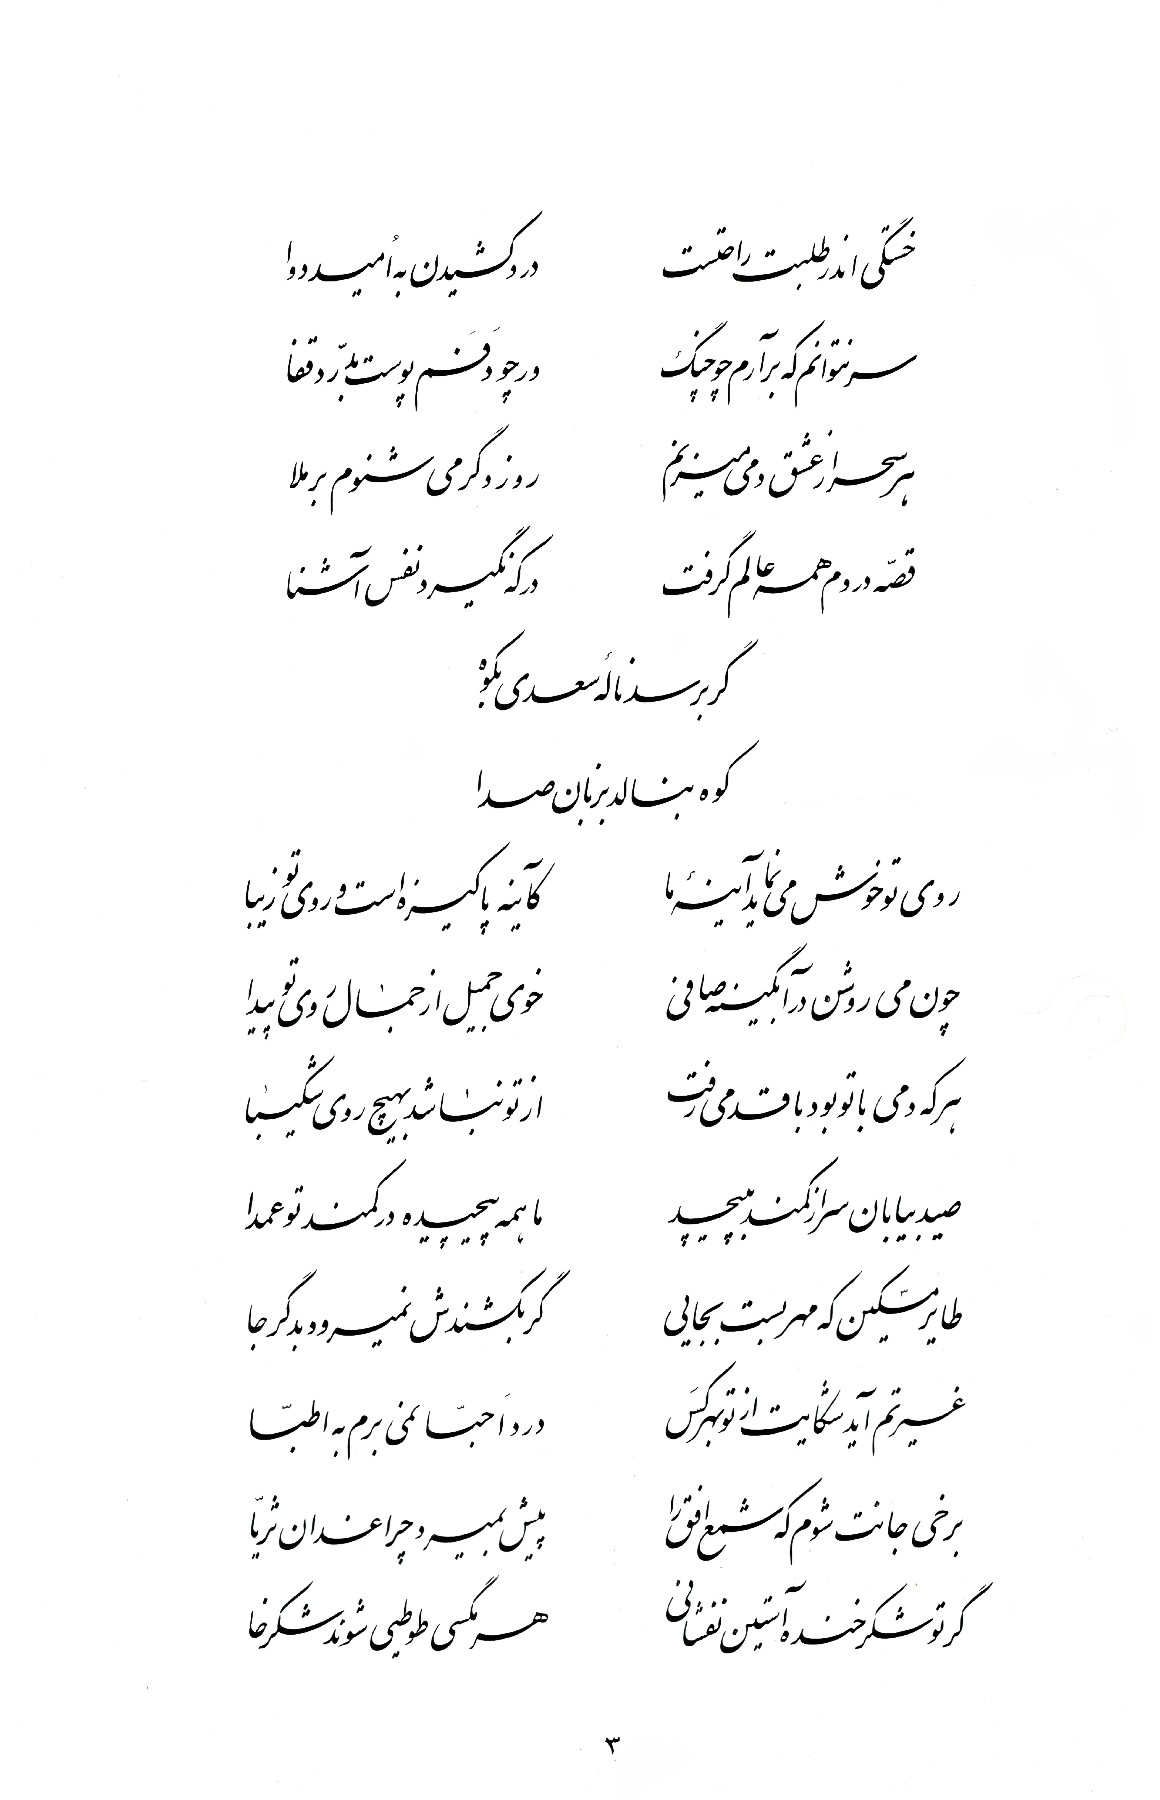 خستگی اندر طلبت راحتست درد کشیدن به اُمید دوا
سر نتوانم که برآرم چو چنگ ور چو دفم پوست بدرّد قفا
هر سحر از عشق دمی میزنم روز دگر می شنوم بر ملا
قصّه دردم همه عالم گرفت در که نگیرد نفس آشنا
گر برسد نالهٔ سعدی بکوه
کوه بنالد بزبان صدا
روی تو خوش می نماید آینهٔ ما کآینه پاکیزه است و روی تو زیبا
چون می روشن در آبگینه صافی خوی جمیل از جمال روی تو پیدا
هر که دمی با تو بود یا قدمی رفت از تو نباشد بهیچ روی شکیبا
صید بیابان سر از کمند بپیچد ما همه پیچیده در کمند تو عمدا
طایر مسکین که مهر بست بجایی گر بکشندش نمیرود بدگر جا
غیرتم آید شکایت از تو بهر کس درد اَحبّا نمی برم به اطبّا
برخی جانت شوم که شمع افق را پیش بمیرد چراغدان ثریّا
گر تو شکر خنده آستین نفشانی هر مگسی طوطیی شوند شکرخا
۳